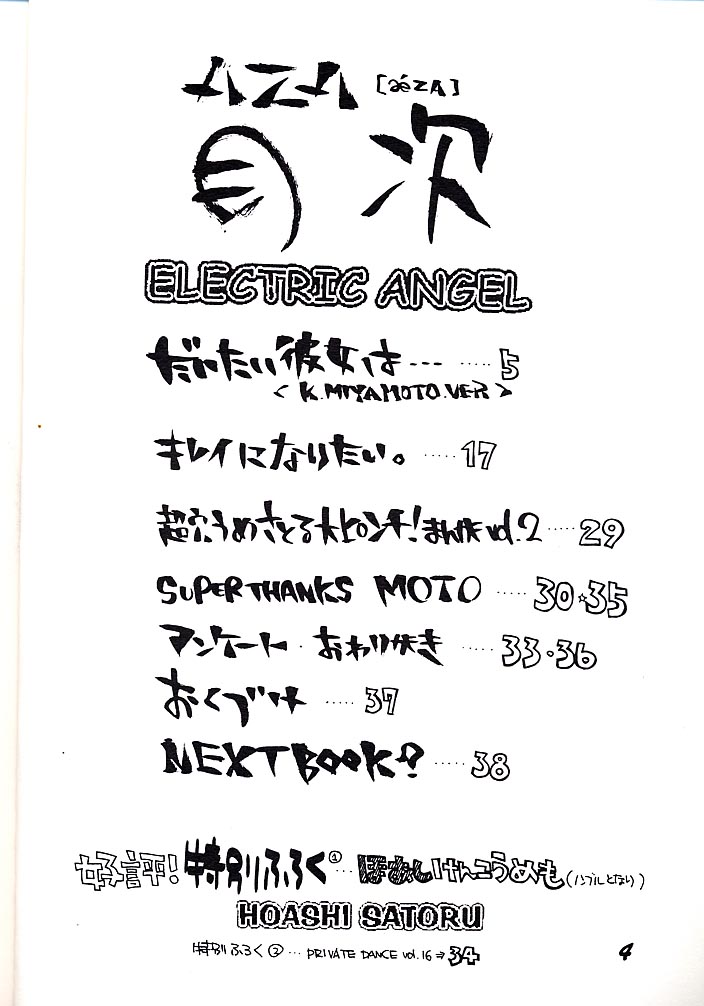 AZA [aézA]
目次
ELECTRIC ANGEL
だいたい彼女は… ‥‥‥5
<K.MIYAMOTO.VER>
キレイになりたい。‥‥‥17
超穴うめさとる大ピンチ!まんが vol.2 ‥‥‥29
SUPER THANKS MOTO ‥‥‥30☆35
アンケート・おわりがき ‥‥‥33・36
おくづけ ‥‥‥37
NEXT BOOK? ‥‥‥38
好評!特別ふろく① … ほあしけんこうめも(ノンブルとなり)
HOASHI SATORU
特別ふろく② … PRIVATE DANCE vol.16⇒34
4